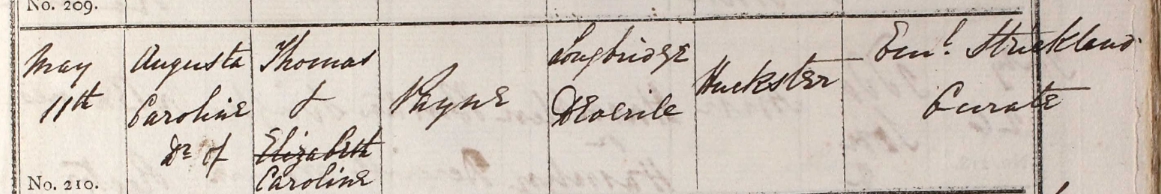 No. 209.
May 11th
Augusta Caroline Dr. of
Thomas & Elizabeth Caroline
Payne
Longbridge Deverile
Huckster
Eml. Strickland Curate
No. 210.